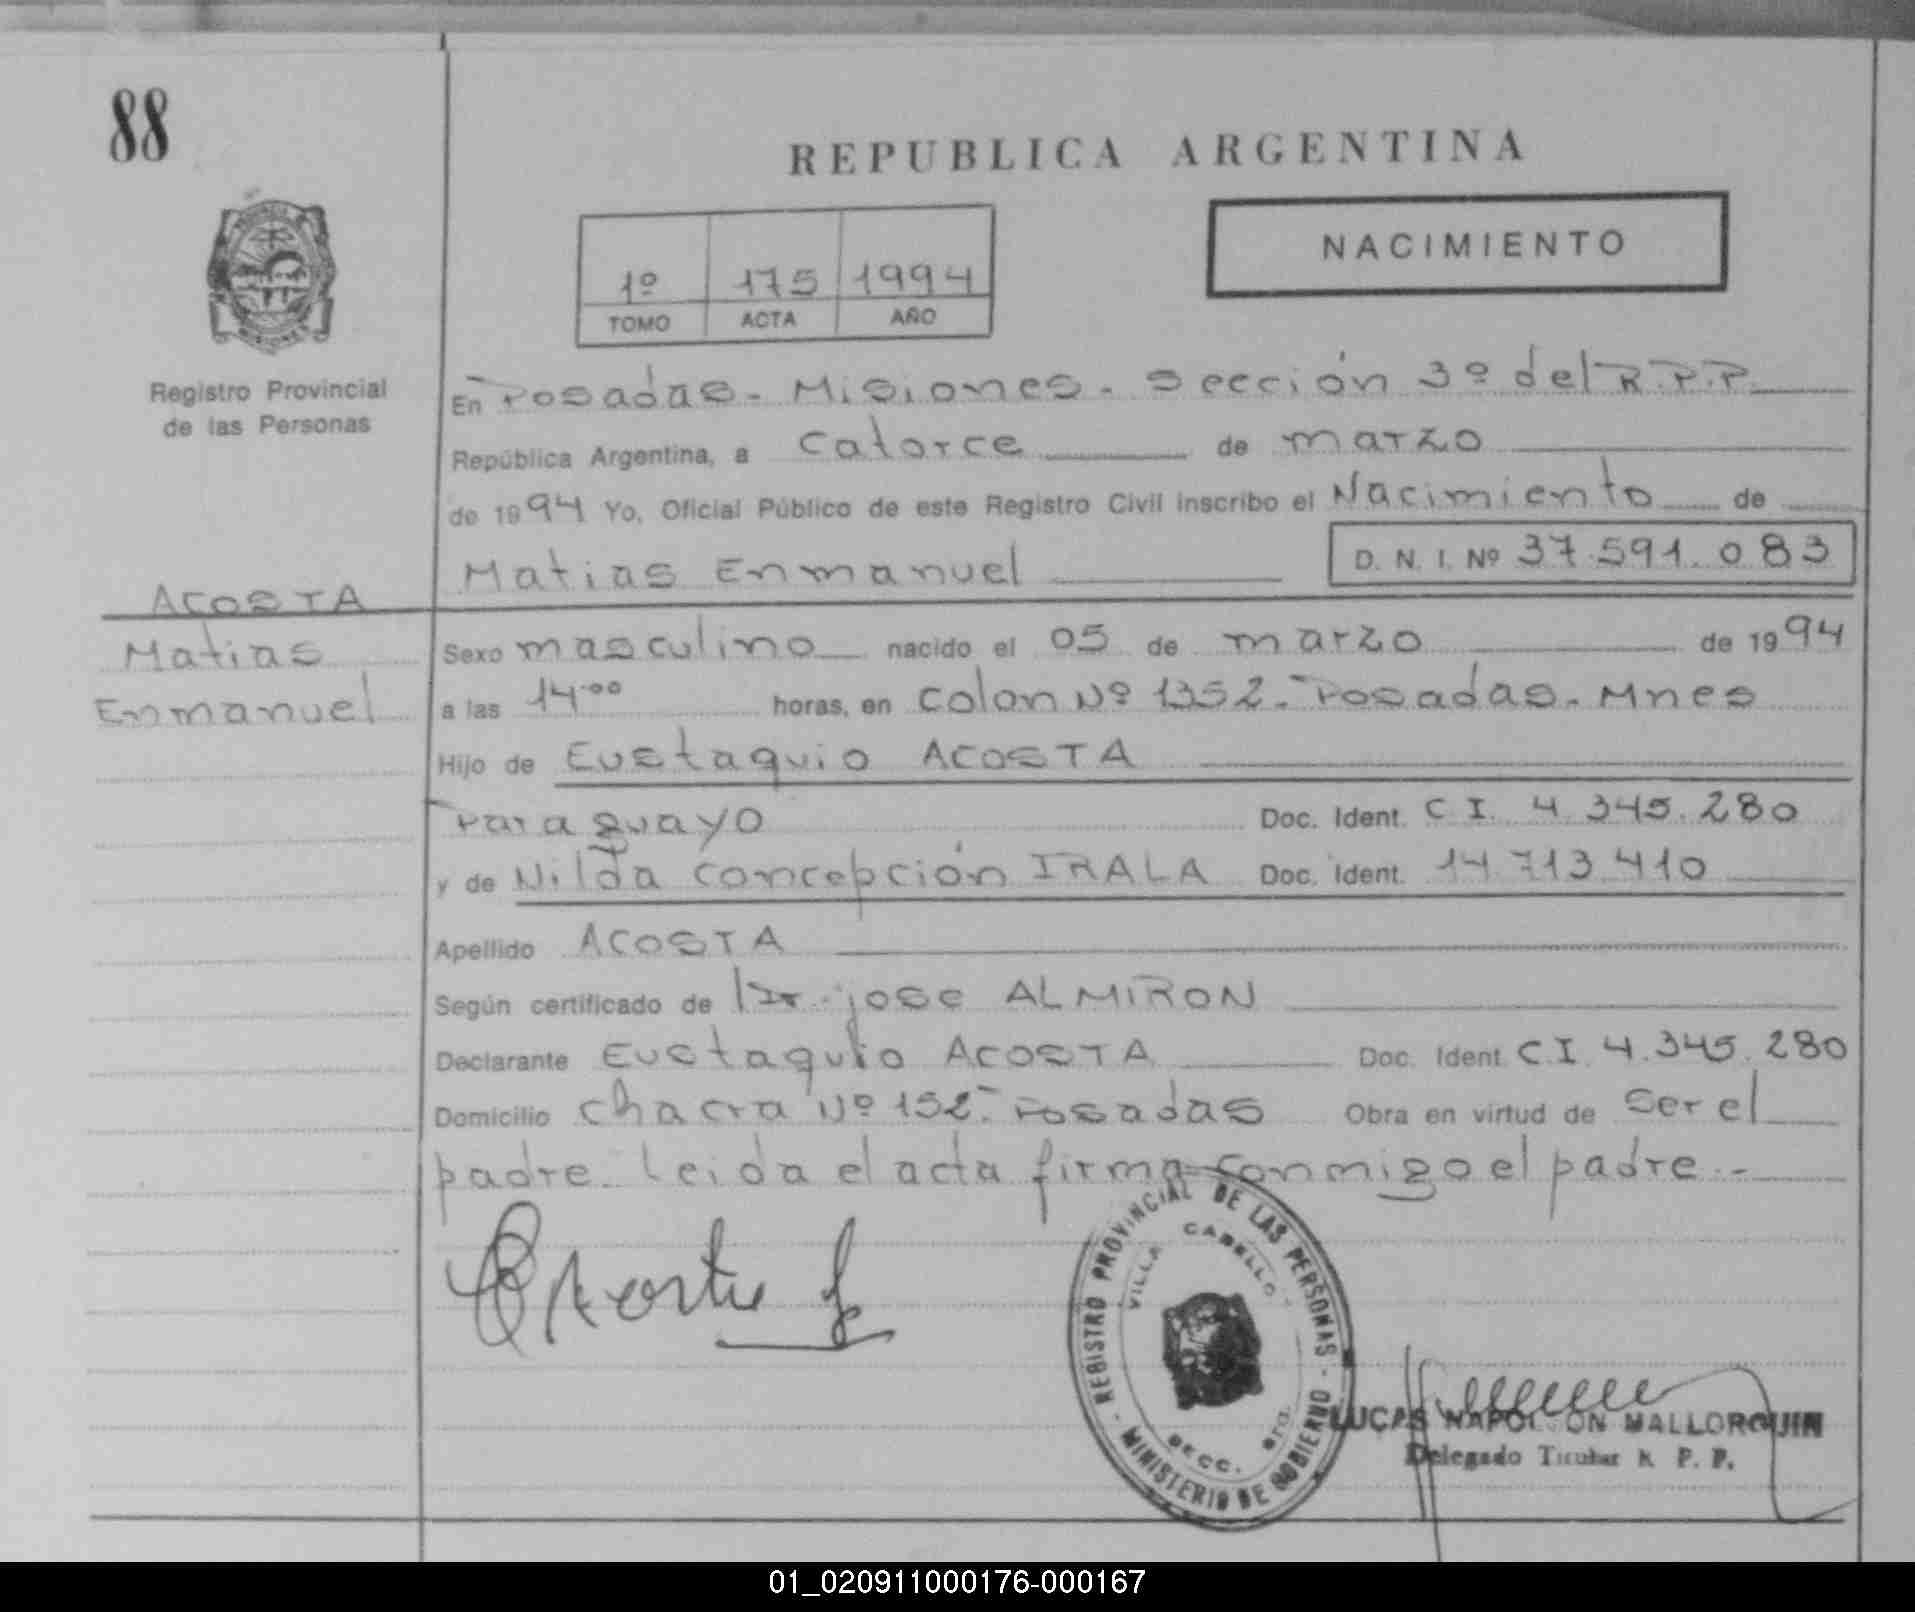 88
REPUBLICA ARGENTINA
NACIMIENTO
1º 175 1994
TOMO ACTA AÑO
Registro Provincial
de las Personas
En Posadas - Misiones - Sección 3º del R.P.P.
República Argentina, a catorce de marzo
de 1994 Yo, Oficial Público de este Registro Civil inscribo el Nacimiento de
Matias Enmanuel D. N. I. Nº 37.591.083
ACOSTA
Matias
Enmanuel
Sexo masculino nacido el 05 de marzo de 1994
a las 14.00 horas, en Colon Nº 1352 - Posadas - Mnes
Hijo de Eustaquio ACOSTA
Paraguayo Doc. Ident. C I. 4.345.280
y de Nilda Concepción IRALA Doc. Ident. 14.713.410
Apellido ACOSTA
Según certificado de Dr. jose ALMIRON
Declarante Eustaquio ACOSTA Doc. Ident. C.I. 4.345.280
Domicilio Chacra Nº 152 - Posadas Obra en virtud de ser el
padre - Leida el acta firma conmigo el padre.-
REGISTRO PROVINCIAL DE LAS PERSONAS - MINISTERIO DE GOBIERNO -
VILLA CABELLO -
SECC.
LUCAS NAPOLEON MALLORQUIN
Delegado Titular R. P. P.
01_020911000176-000167